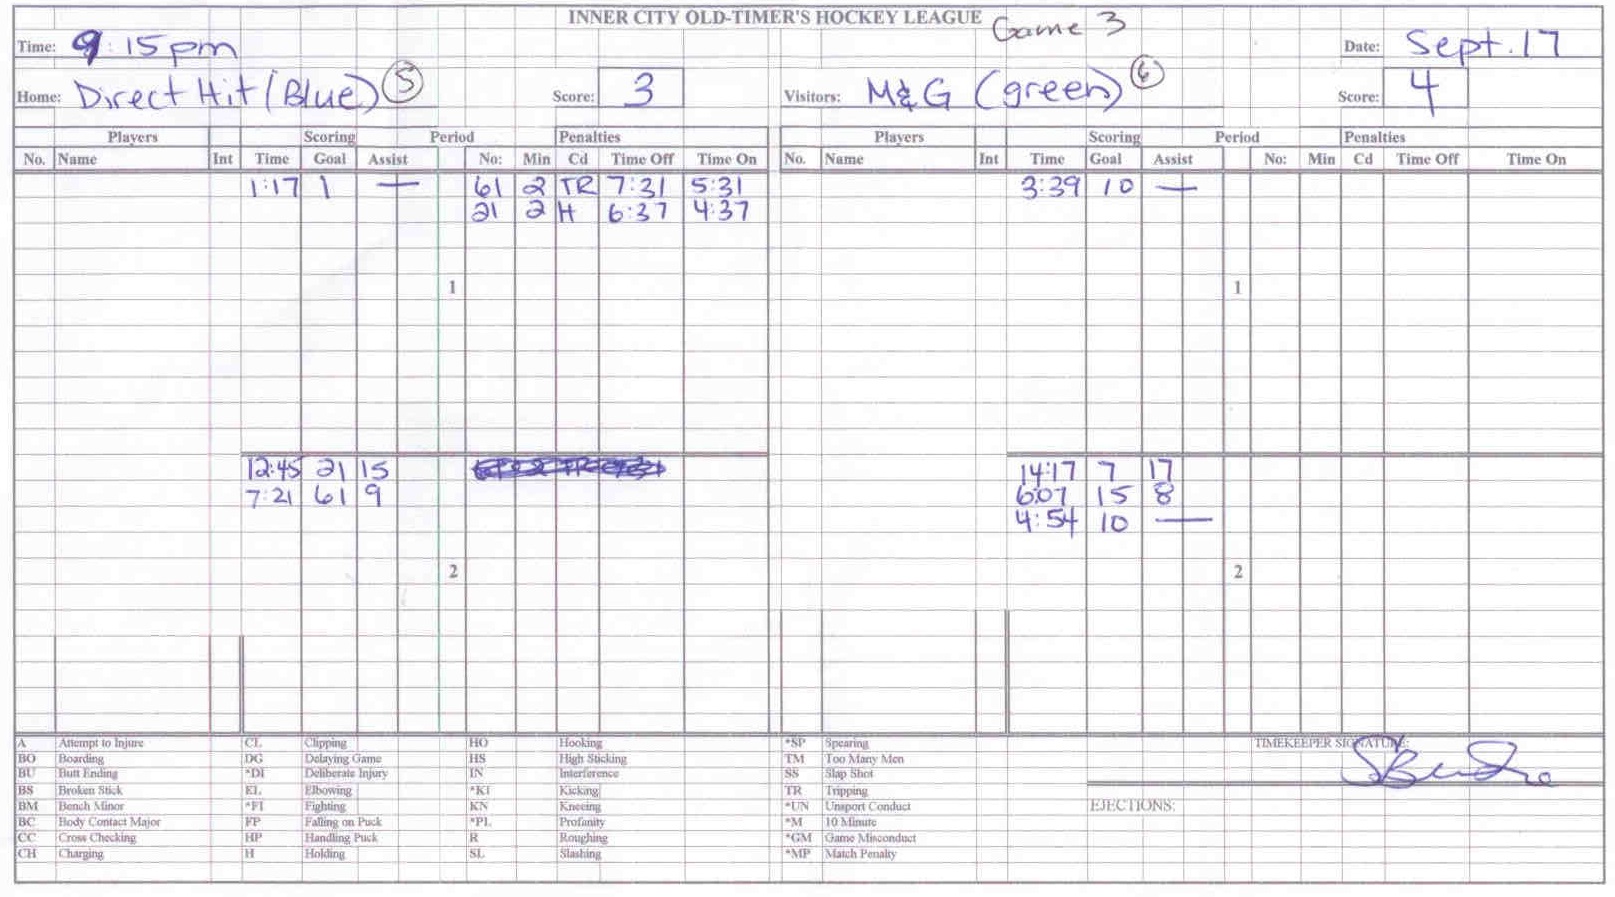 INNER CITY OLD-TIMER'S HOCKEY LEAGUE Game 3
Time: 9:15pm Date: Sept. 17
Home: Direct Hit (Blue) 5 Score: 3 Visitors: M&G (green) 6 Score: 4
Players Scoring Period Penalties Players Scoring Period Penalties
No. Name Int Time Goal Assist No: Min Cd Time Off Time On No. Name Int Time Goal Assist No: Min Cd Time Off Time On
1:17 1 — 61 2 TR 7:31 5:31 3:39 10 —
21 2 H 6:37 4:37
1 1
12:45 21 15 14:17 7 17
7:21 61 9 6:07 15 8
4:54 10 —
2 2
A Attempt to Injure CL Clipping HO Hooking *SP Spearing TIMEKEEPER SIGNATURE:
BO Boarding DG Delaying Game HS High Sticking TM Too Many Men
BU Butt Ending *DI Deliberate Injury IN Interference SS Slap Shot
BS Broken Stick EL Elbowing *KI Kicking TR Tripping
BM Bench Minor *FI Fighting KN Kneeing *UN Unsport Conduct EJECTIONS:
BC Body Contact Major FP Falling on Puck *PL Profanity *M 10 Minute
CC Cross Checking HP Handling Puck R Roughing *GM Game Misconduct
CH Charging H Holding SL Slashing *MP Match Penalty